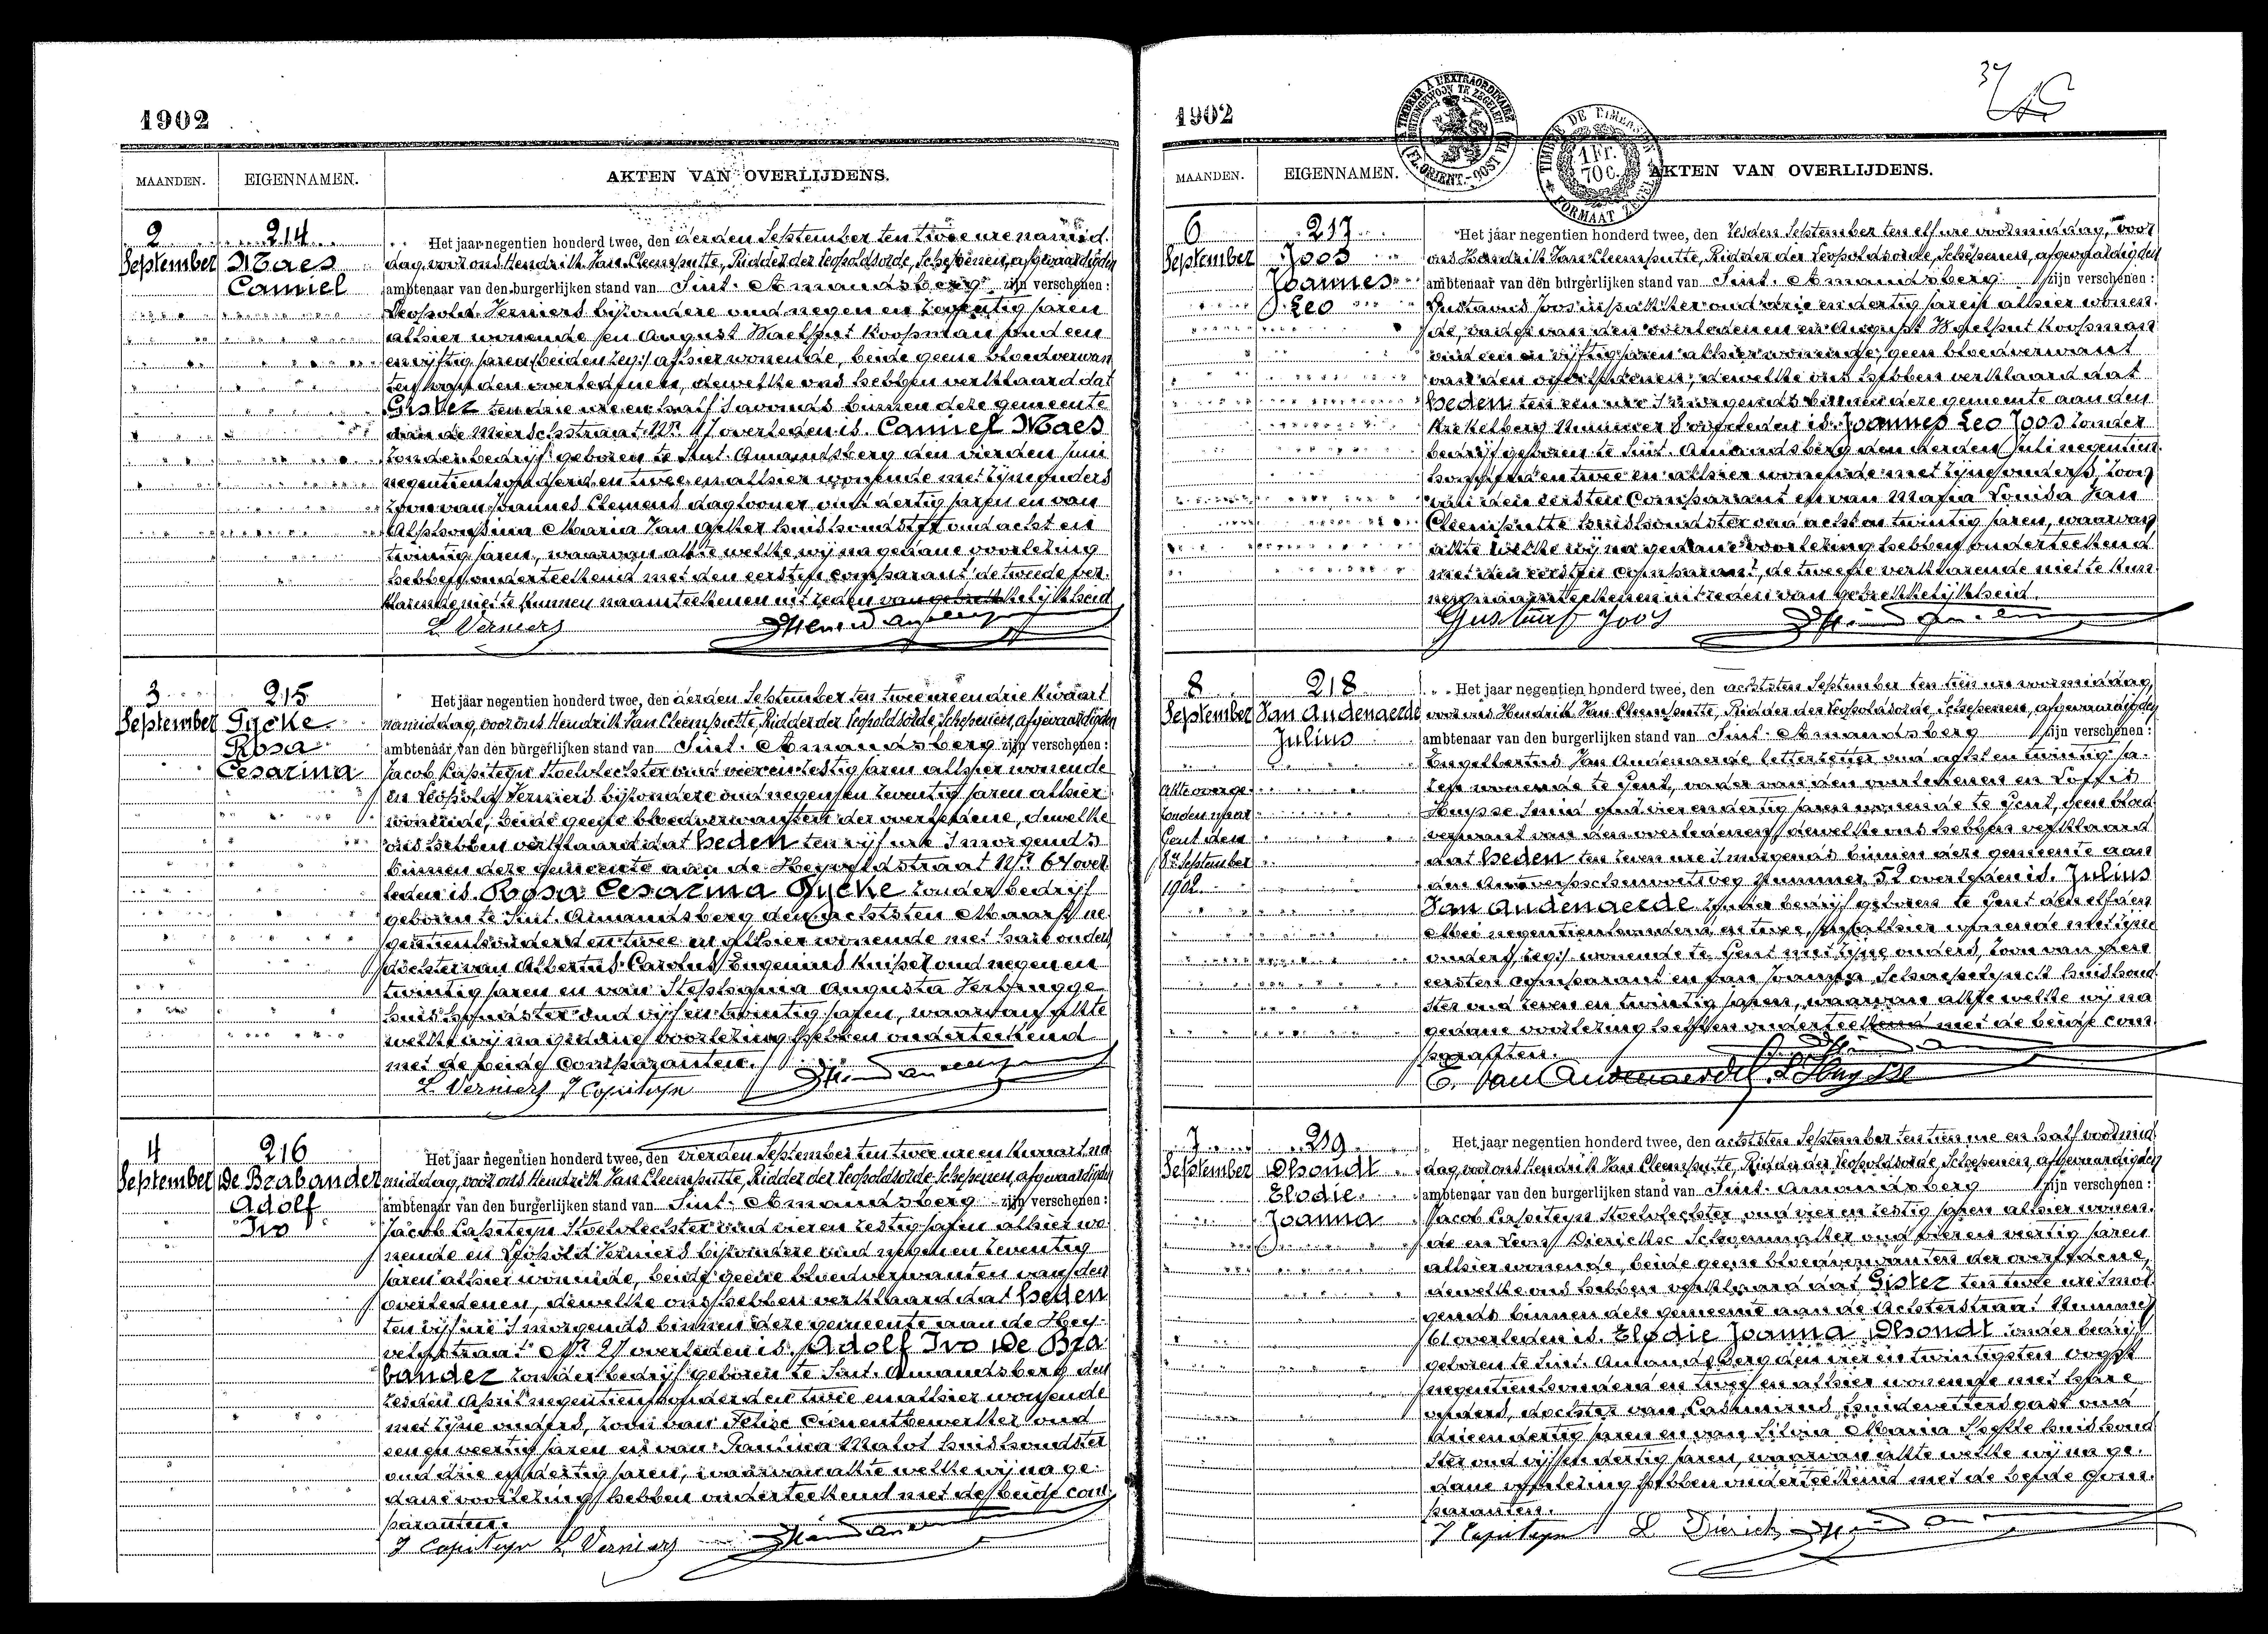 1902
MAANDEN. EIGENNAMEN. AKTEN VAN OVERLIJDENS.
2 September
214
Maes
Camiel
Het jaar negentien honderd twee, den derden September ten twee ure namid
dag, voor ons Hendrik Van Cleemputte, Ridder der Leopoldsorde, Schepenen, afgevaardigden
ambtenaar van den burgerlijken stand van Sint-Amandsberg zijn verschenen:
Leopold Verniers bijzondere oud negen en zeventig jaren
alhier wonende en August Maelput Koopman oud een
en vijftig jaren (beiden zeg:) alhier wonende, beide geene bloedverwan
ten van den overledenen, dewelke ons hebben verklaard dat
Gister ten drie ure en half 's avonds binnen deze gemeente
aan de Meerschstraat Nr. 41 overleden is Camiel Maes
zonder bedrijf geboren te Sint-Amandsberg den vierden Juni
negentienhonderd en twee en alhier wonende met zijne ouders
zoon van Joannes Clemens daglooner oud dertig jaren en van
Alphonsina Maria Van Acker huishoudster oud acht en
twintig jaren, waarvan akte welke wij na gedane voorlezing
hebben onderteekend met den eersten comparant de tweede ver
klarende niet te kunnen naamteekenen uit reden van gebrekkelijkheid
L. Verniers
3 September
215
Gycke
Rosa
Cesarina
Het jaar negentien honderd twee, den derden September ten twee ure en drie kwaart
namiddag, voor ons Hendrik Van Cleemputte, Ridder der Leopoldsorde, Schepenen, afgevaardigden
ambtenaar van den burgerlijken stand van Sint-Amandsberg zijn verschenen:
Jacob Capiteyn Stoelvlechter oud vier en zestig jaren alhier wonende
en Leopold Verniers bijzondere oud negen en zeventig jaren alhier
wonende, beide geene bloedverwanten der overledene, dewelke
ons hebben verklaard dat heden ten vijf ure 's morgends
binnen deze gemeente aan de Heyveldstraat Nr. 64 over
leden is Rosa Cesarina Gycke zonder bedrijf
geboren te Sint-Amandsberg den achtsten Maart ne
gentienhonderd en twee en alhier wonende met hare ouders
dochter van Albertus Carolus Eugenius Kuiper oud negen en
twintig jaren en van Stephania Augusta Verbrugge
huishoudster oud vijf en twintig jaren, waarvan akte
welke wij na gedane voorlezing hebben onderteekend
met de beide comparanten.
L. Verniers J Capiteyn
4 September
216
De Brabander
Adolf
Ivo
Het jaar negentien honderd twee, den vierden September ten twee ure en kwaart na
middag, voor ons Hendrik Van Cleemputte, Ridder der Leopoldsorde Schepenen, afgevaardigden
ambtenaar van den burgerlijken stand van Sint-Amandsberg zijn verschenen:
Jacob Capiteyn Stoelvlechter oud vier en zestig jaren alhier wo
nende en Leopold Verniers bijzondere oud negen en zeventig
jaren alhier wonende, beide geene bloedverwanten van den
overledenen, dewelke ons hebben verklaard dat heden
ten vijf ure 's morgends binnen deze gemeente aan de Hey
veldstraat Nr. 27 overleden is Adolf Ivo De Bra
bander zonder bedrijf geboren te Sint-Amandsberg den
zesden April negentienhonderd en twee en alhier wonende
met zijne ouders, zoon van Felix Cimentbewerker oud
een en veertig jaren en van Paulina Malot huishoudster
oud drie en dertig jaren, waarvan akte welke wij na ge
dane voorlezing hebben onderteekend met de beide com
paranten.
J Capiteyn L. Verniers
1902
TIMBRER A L'EXTRAORDINAIRE
TIMBRE DE DIMENSION
1 Fr. 70 C.
FORMAAT ZEGEL
MAANDEN. EIGENNAMEN. AKTEN VAN OVERLIJDENS.
6 September
217
Joos
Joannes
Leo
Het jaar negentien honderd twee, den zesden September ten elf ure voormiddag, voor
ons Hendrik Van Cleemputte, Ridder der Leopoldsorde, Schepenen, afgevaardigden
ambtenaar van den burgerlijken stand van Sint-Amandsberg zijn verschenen:
Gustavus Joos oud drie en dertig jaren alhier wonen
de, vader van den overledenen en August Maelput Koopman
oud een en vijftig jaren alhier wonende, geen bloedverwant
van den overledenen, dewelke ons hebben verklaard dat
heden ten een ure 's morgends binnen deze gemeente aan den
Krekelberg Nummer 8 overleden is Joannes Leo Joos zonder
bedrijf geboren te Sint-Amandsberg den derden Juli negentien
honderd en twee en alhier wonende met zijne ouders, zoon
van den eersten comparant en van Maria Louisa Van
Cleemputte huishoudster oud acht en twintig jaren, waarvan
akte welke wij na gedane voorlezing hebben onderteekend
met den eersten comparant, de tweede verklarende niet te kun
nen naamteekenen uit reden van gebrekkelijkheid.
Gustaaf Joos
8 September
218
Van Audenaerde
Julius
Akte overge
zonden naar
Gent den
8n September
1902
Het jaar negentien honderd twee, den achtsten September ten tien ure voormiddag,
voor ons Hendrik Van Cleemputte, Ridder der Leopoldsorde, Schepenen, afgevaardigden
ambtenaar van den burgerlijken stand van Sint-Amandsberg zijn verschenen:
Engelbertus Van Audenaerde letterzetter oud acht en twintig ja
ren wonende te Gent, vader van den overledenen en
Huysse Smid oud vier en dertig jaren wonende te Gent, geen bloed
verwant van den overledenen, dewelke ons hebben verklaard
dat heden ten zeven ure 's morgends binnen deze gemeente aan
den Antwerpschensteenweg Nummer 52 overleden is Julius
Van Audenaerde zonder bedrijf geboren te Gent den elfden
Mei negentienhonderd en twee, alhier wonende met zijne
ouders (zeg:) wonende te Gent met zijne ouders, zoon van den
eersten comparant en van Joanna Schaepelynck huishoud
ster oud zeven en twintig jaren, waarvan akte welke wij na
gedane voorlezing hebben onderteekend met de beide com
paranten.
E. Van Audenaerde L. Huysse
7 September
219
Dhondt
Elodie
Joanna
Het jaar negentien honderd twee, den achtsten September ten tien ure en half voormid
dag, voor ons Hendrik Van Cleemputte, Ridder der Leopoldsorde, Schepenen, afgevaardigden
ambtenaar van den burgerlijken stand van Sint-Amandsberg zijn verschenen:
Jacob Capiteyn Stoelvlechter oud vier en zestig jaren alhier wonen
de en Louis Dierickx Schoenmaker oud vier en veertig jaren
alhier wonende, beide geene bloedverwanten der overledene,
dewelke ons hebben verklaard dat Gister ten twee ure 's mor
gends binnen deze gemeente aan de Achterstraat Nummer
61 overleden is Elodie Joanna Dhondt zonder bedrijf
geboren te Sint-Amandsberg den vier en twintigsten oogst
negentienhonderd en twee en alhier wonende met hare
ouders, dochter van Casimirus huidevettersgast oud
drie en dertig jaren en van Silvia Maria huishoud
ster oud vijf en dertig jaren, waarvan akte welke wij na ge
dane voorlezing hebben onderteekend met de beide com
paranten.
J Capiteyn L Dierickx